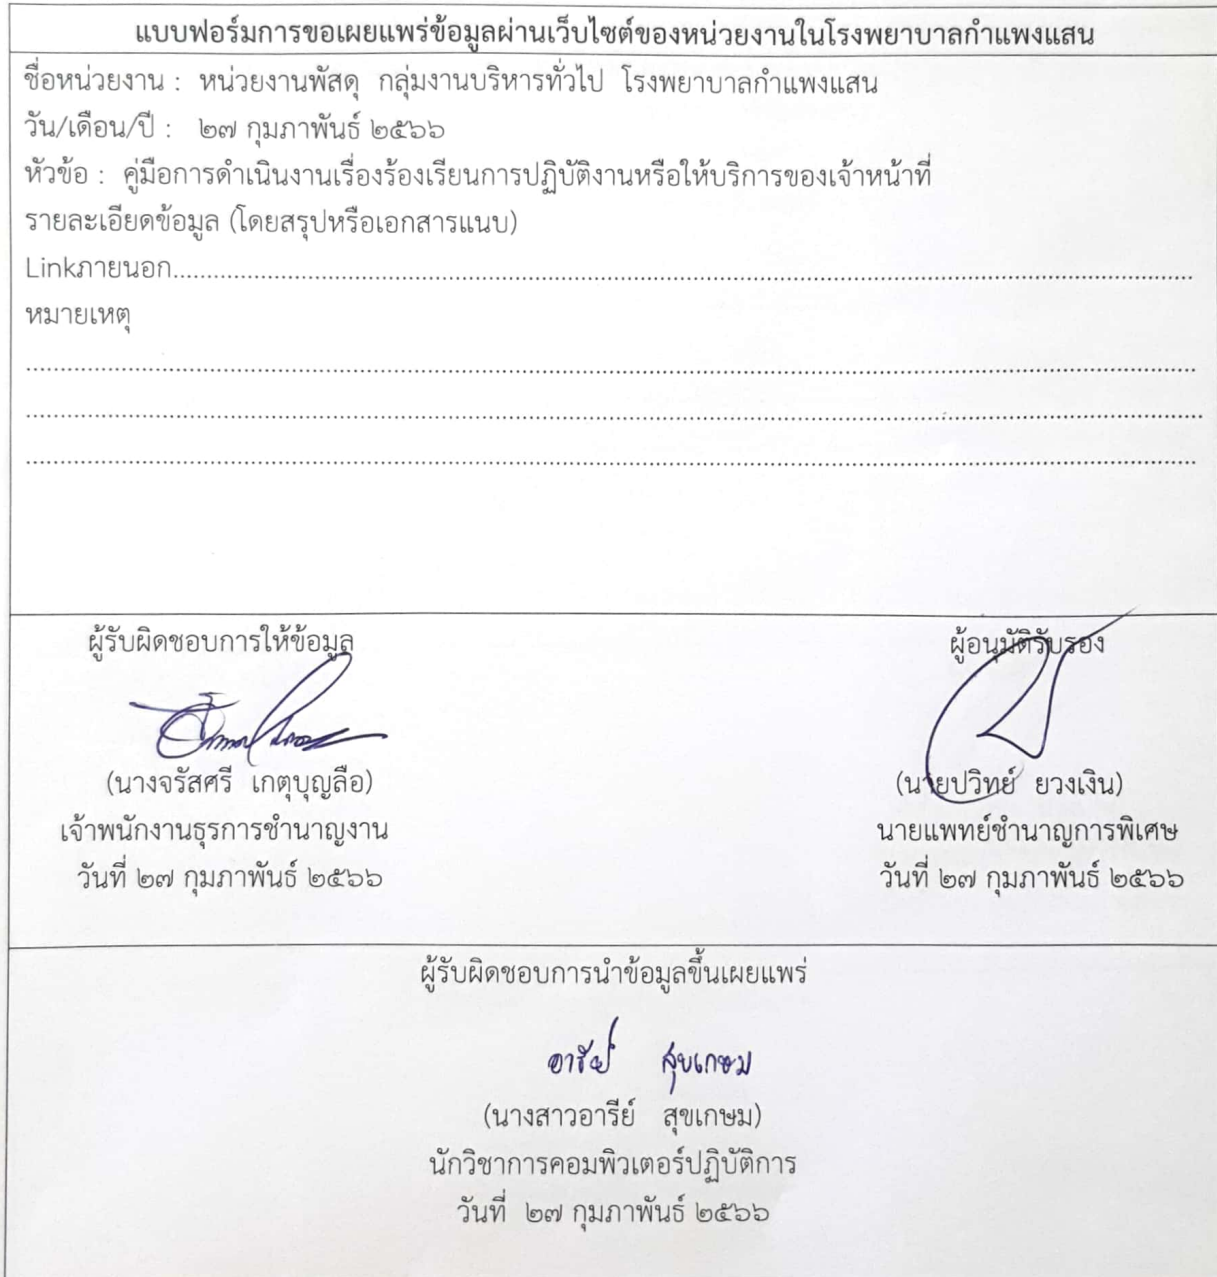 แบบฟอร์มการขอเผยแพร่ข้อมูลผ่านเว็บไซต์ของหน่วยงานในโรงพยาบาลกำแพงแสน
ชื่อหน่วยงาน : หน่วยงานพัสดุ กลุ่มงานบริหารทั่วไป โรงพยาบาลกำแพงแสน
วัน/เดือน/ปี : ๒๗ กุมภาพันธ์ ๒๕๖๖
หัวข้อ : คู่มือการดำเนินงานเรื่องร้องเรียนการปฏิบัติงานหรือให้บริการของเจ้าหน้าที่
รายละเอียดข้อมูล (โดยสรุปหรือเอกสารแนบ)
Linkภายนอก
หมายเหตุ
ผู้รับผิดชอบการให้ข้อมูล
(นางจรัสศรี เกตุบุญลือ)
เจ้าพนักงานธุรการชำนาญงาน
วันที่ ๒๗ กุมภาพันธ์ ๒๕๖๖
ผู้อนุมัติรับรอง
(นายปวิทย์ ยวงเงิน)
นายแพทย์ชำนาญการพิเศษ
วันที่ ๒๗ กุมภาพันธ์ ๒๕๖๖
ผู้รับผิดชอบการนำข้อมูลขึ้นเผยแพร่
อารีย์ สุขเกษม
(นางสาวอารีย์ สุขเกษม)
นักวิชาการคอมพิวเตอร์ปฏิบัติการ
วันที่ ๒๗ กุมภาพันธ์ ๒๕๖๖